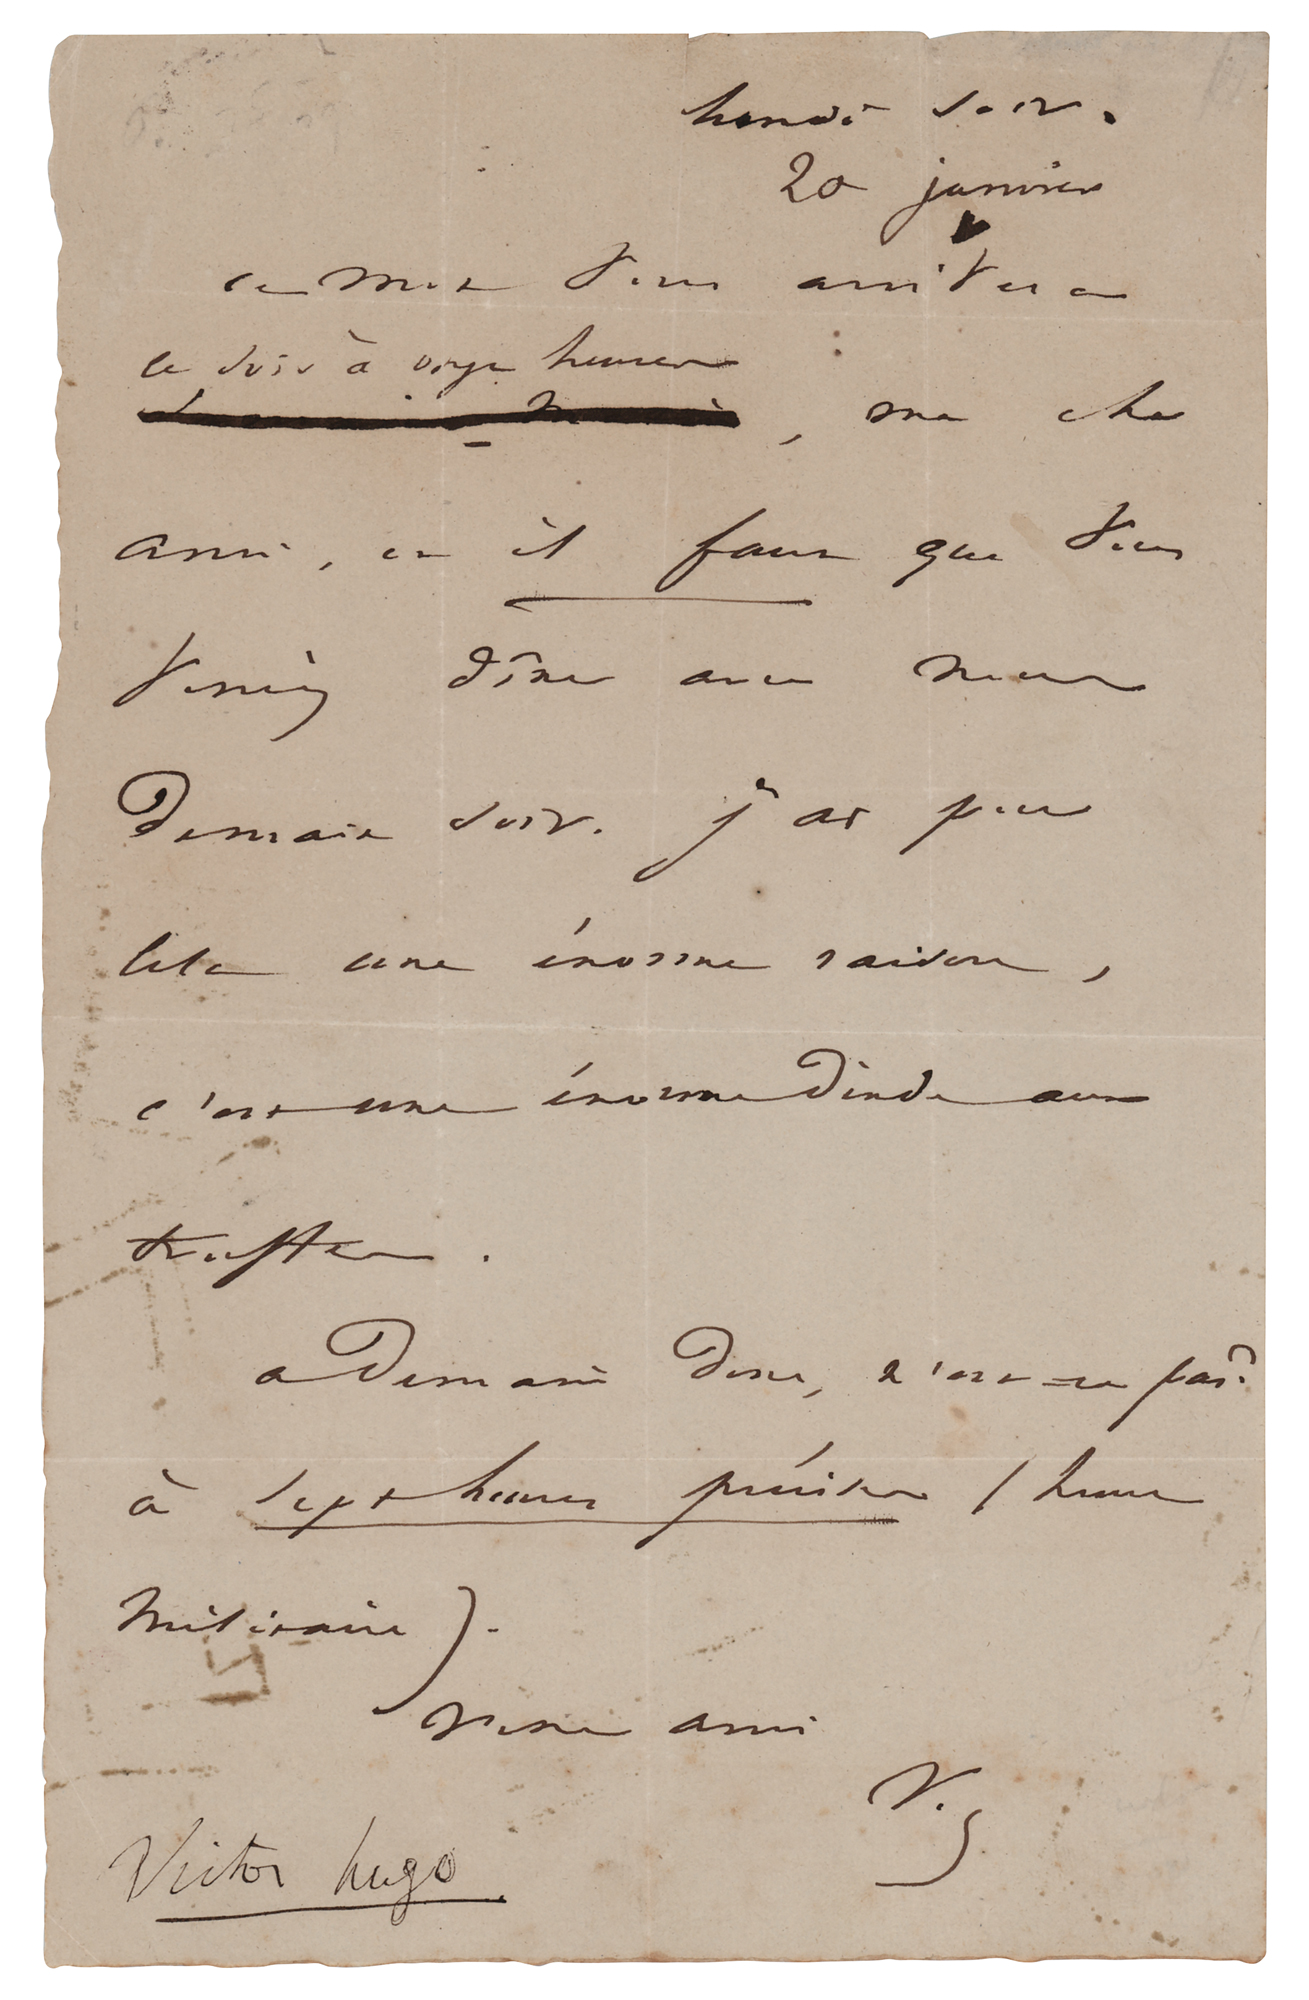 lundi soir.
20 janvier
ce mot vous arrivera
ce soir à onze heures
, mon cher
ami, car il faut que vous
veniez dîner avec nous
Demain soir. j'ai pour
cela une énorme raison,
c'est une énorme dinde aux
truffes.
a Demain donc, n'est-ce pas?
à sept heures précises (heure
militaire).
votre ami
V.
Victor hugo